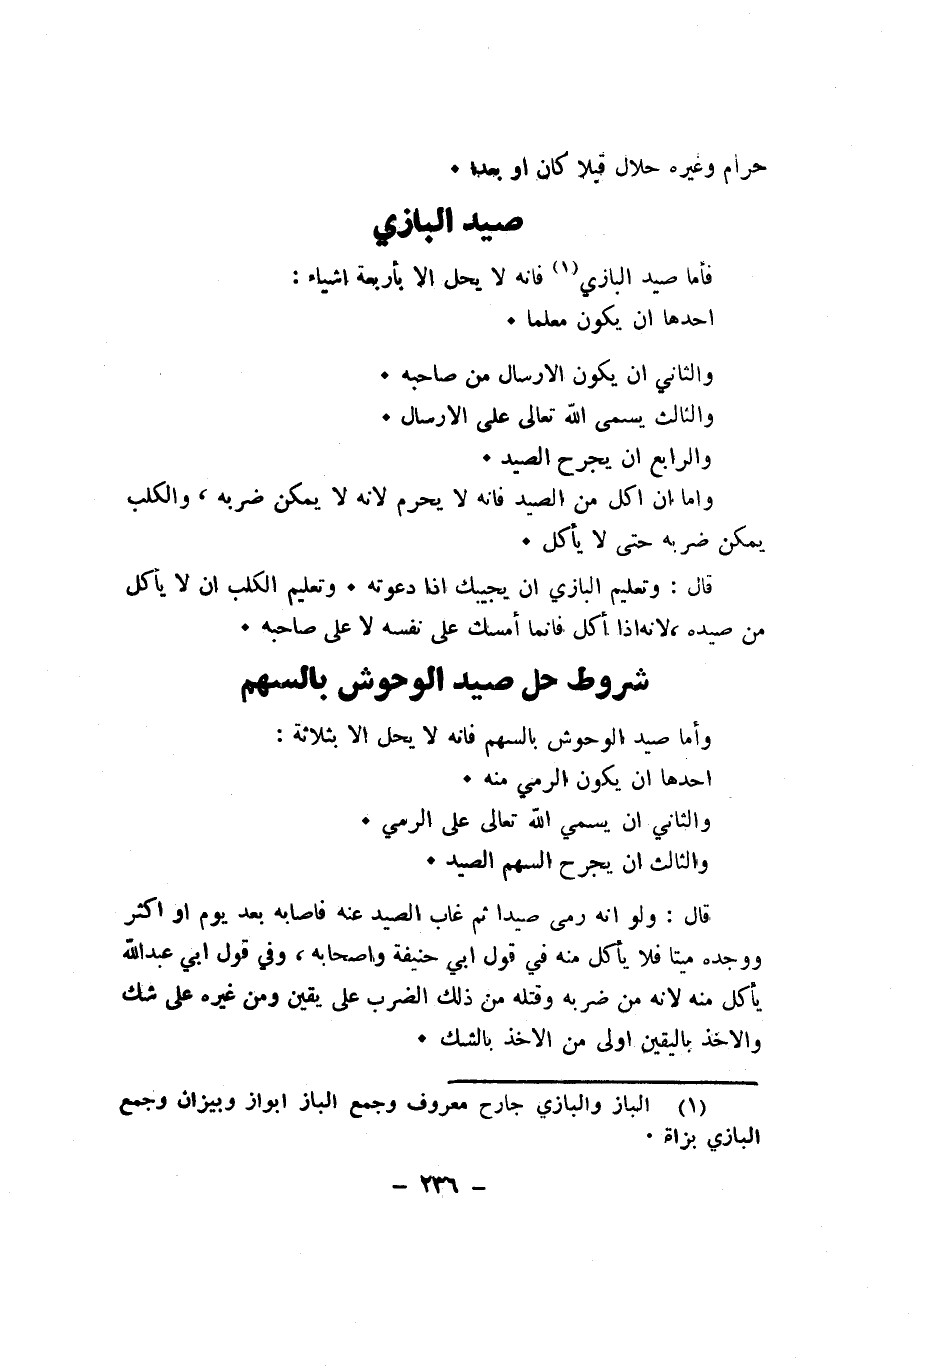 حرام وغيره حلال قبلا كان او بعدا ٠
صيد البازي
فأما صيد البازي(١) فانه لا يحل الا بأربعة اشياء :
احدها ان يكون معلما ٠
والثاني ان يكون الارسال من صاحبه ٠
والثالث يسمى الله تعالى على الارسال ٠
والرابع ان يجرح الصيد ٠
واما ان اكل من الصيد فانه لا يحرم لانه لا يمكن ضربه ، والكلب
يمكن ضربه حتى لا يأكل ٠
قال : وتعليم البازي ان يجيبك اذا دعوته ٠ وتعليم الكلب ان لا يأكل
من صيده ،لانه اذا أكل فانما أمسك على نفسه لا على صاحبه ٠
شروط حل صيد الوحوش بالسهم
وأما صيد الوحوش بالسهم فانه لا يحل الا بثلاثة :
احدها ان يكون الرمي منه ٠
والثاني ان يسمي الله تعالى على الرمي ٠
والثالث ان يجرح السهم الصيد ٠
قال : ولو انه رمى صيدا ثم غاب الصيد عنه فاصابه بعد يوم او اكثر
ووجده ميتا فلا يأكل منه في قول ابي حنيفة واصحابه ، وفي قول ابي عبدالله
يأكل منه لانه من ضربه وقتله من ذلك الضرب على يقين ومن غيره على شك
والاخذ باليقين اولى من الاخذ بالشك ٠
(١) الباز والبازي جارح معروف وجمع الباز ابواز وبيزان وجمع
البازي بزاة ٠
– ٢٣٦ –